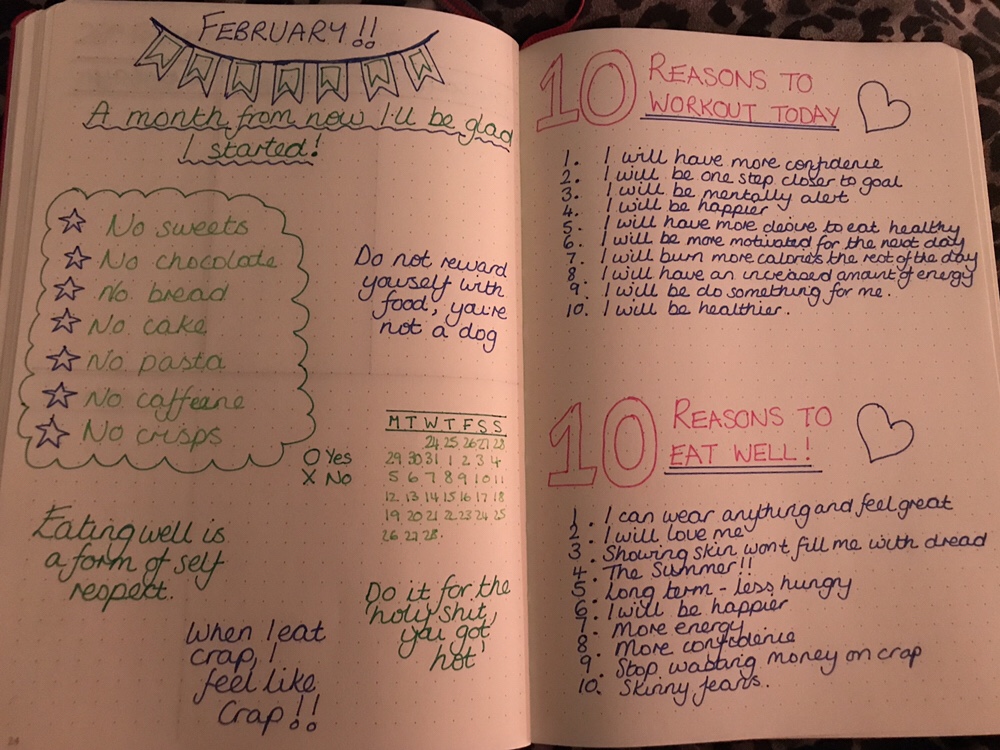 FEBRUARY!!
A month from now I'll be glad
I started!
No sweets
No chocolate
No bread
No cake
No pasta
No caffeine
No crisps
Do not reward
youself with
food, you're
not a dog
M T W T F S S
24 25 26 27 28
29 30 31 1 2 3 4
5 6 7 8 9 10 11
12 13 14 15 16 17 18
19 20 21 22 23 24 25
26 27 28.
O Yes
X No
Eating well is
a form of self
respect.
Do it for the
'holy shit,
you got
hot'
When I eat
crap, I
feel like
Crap!!
24
10 REASONS TO
WORKOUT TODAY
1. I will have more confidence
2. I will be one step closer to goal
3. I will be mentally alert
4. I will be happier
5. I will have more desire to eat healthy
6. I will be more motivated for the next day
7. I will burn more calories the rest of the day
8. I will have an increased amount of energy
9. I will be do something for me.
10. I will be healthier.
10 REASONS TO
EAT WELL!
1. I can wear anything and feel great
2. I will love me
3. Showing skin won't fill me with dread
4. The Summer!!
5. Long term - less hungry
6. I will be happier
7. More energy
8. More confidence
9. Stop wasting money on crap
10. Skinny jeans.